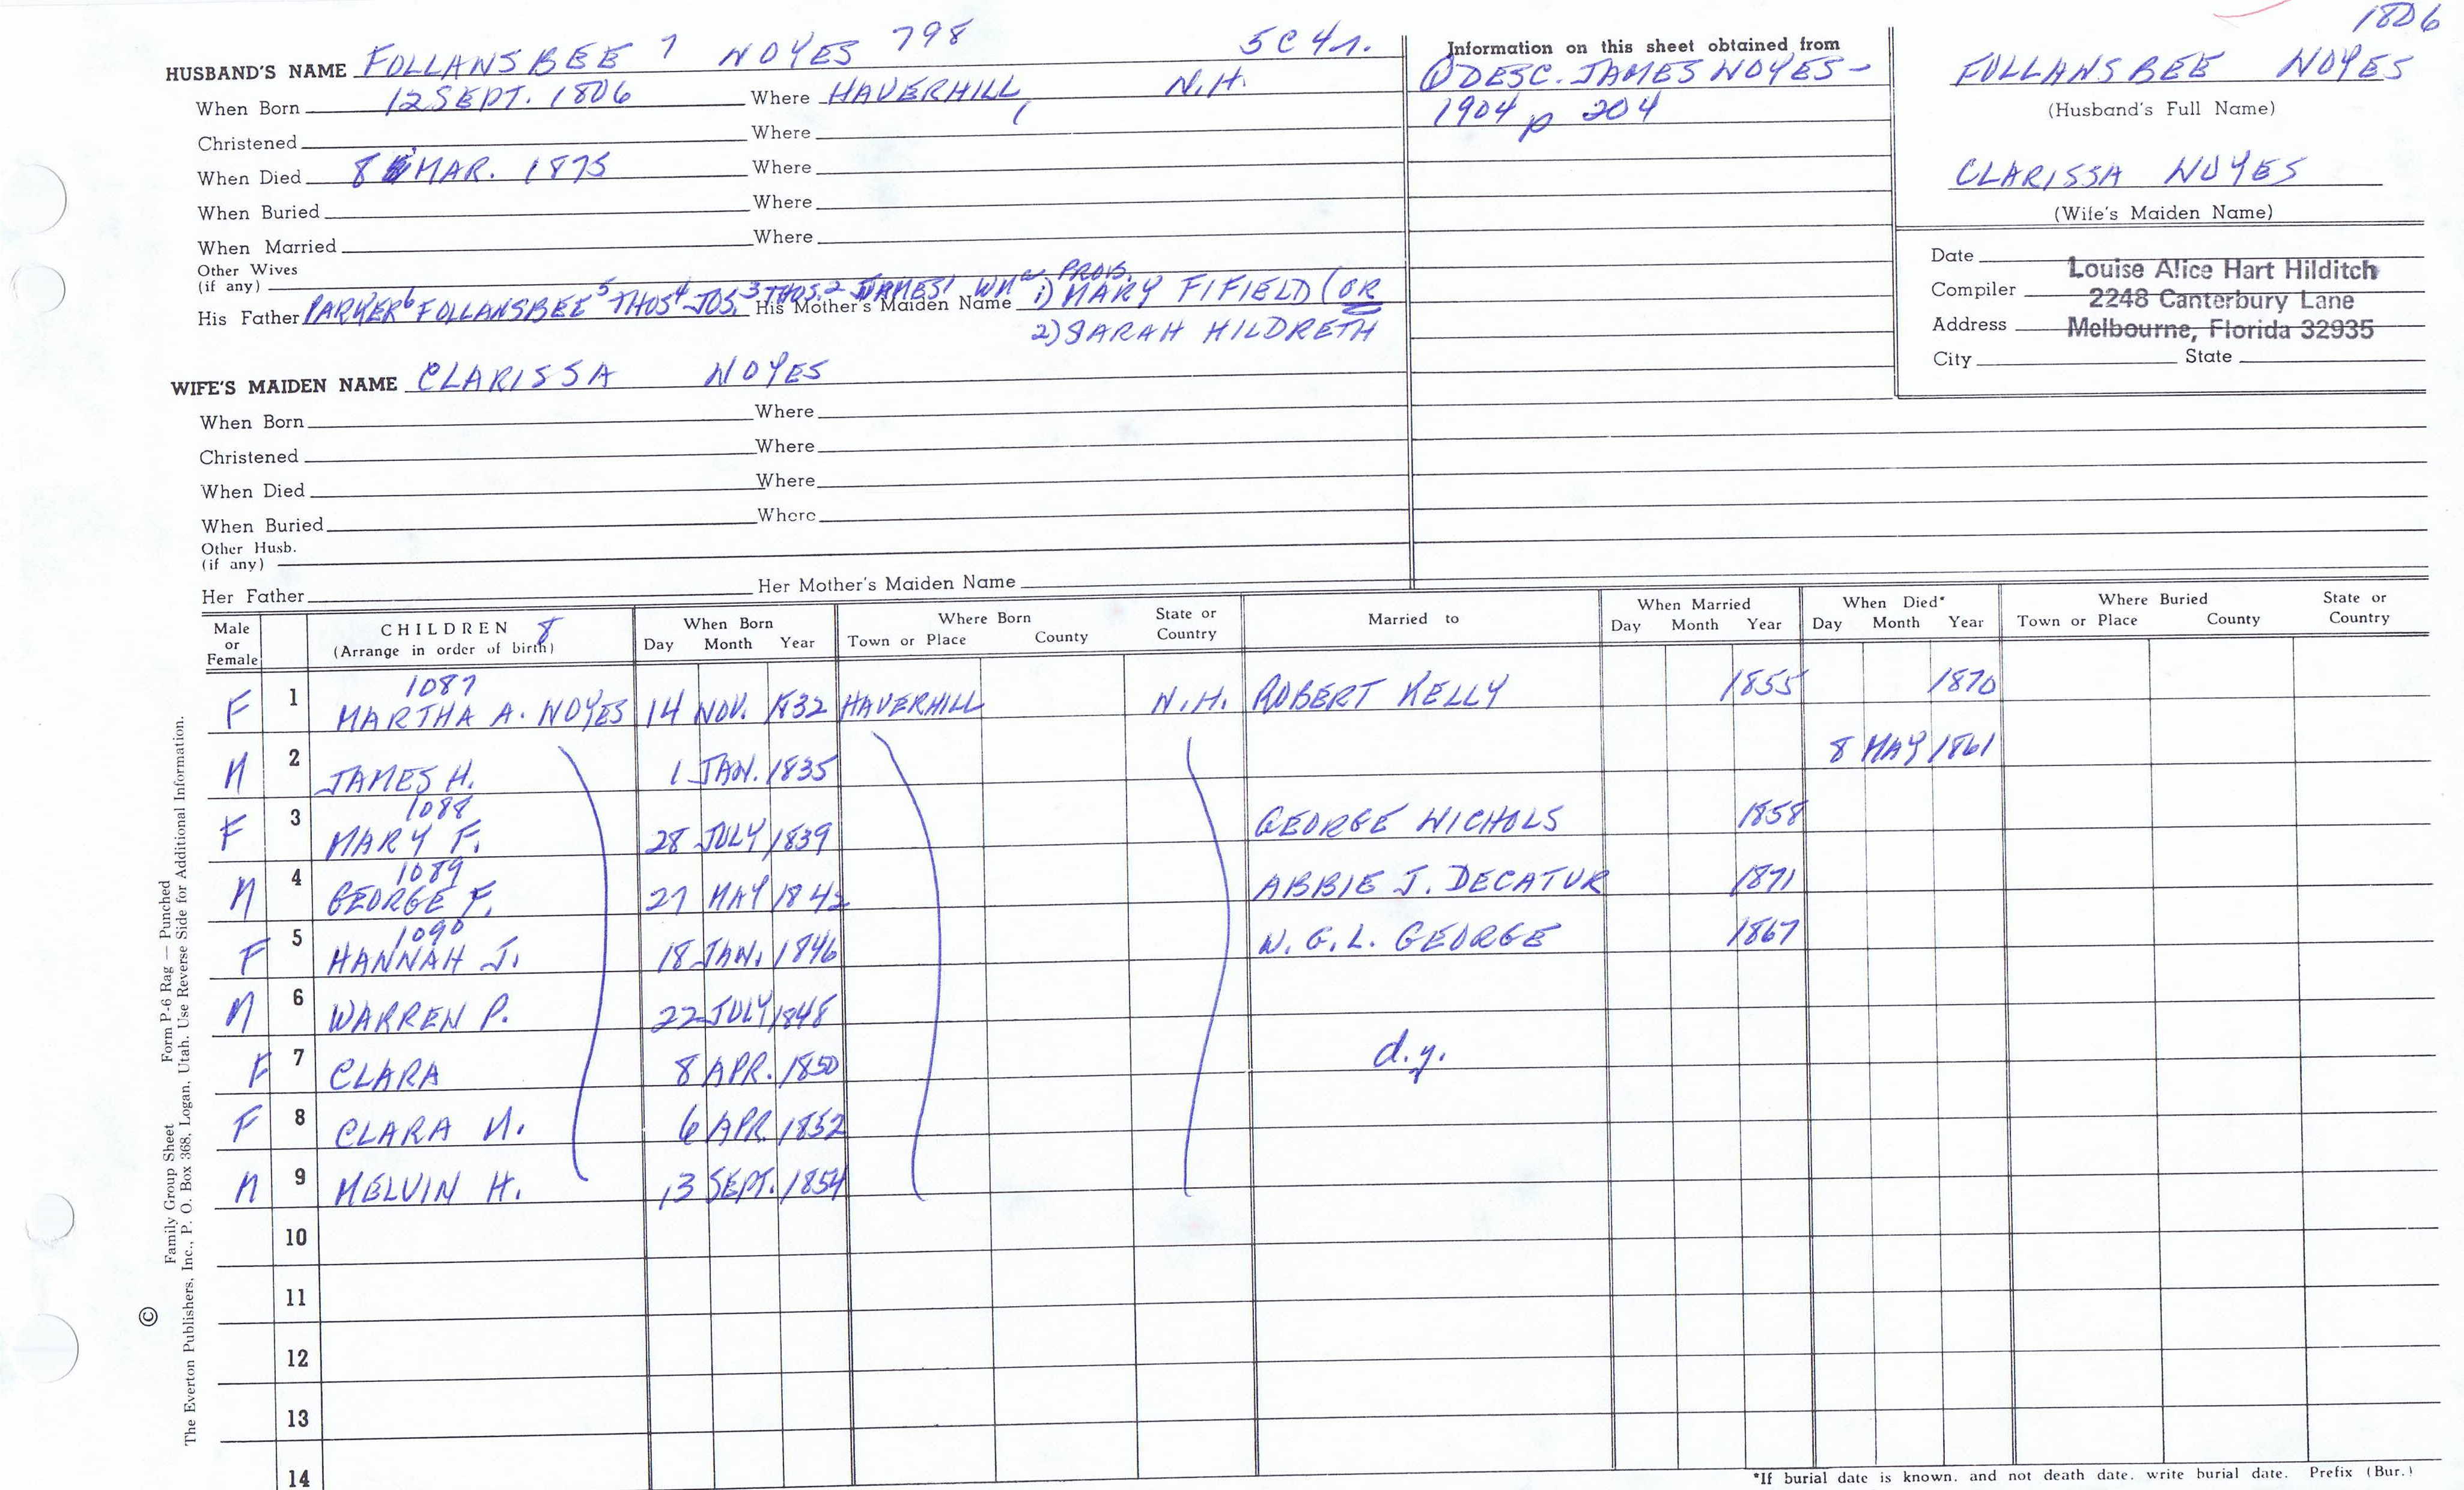 1806
HUSBAND'S NAME FOLLANSBEE 7 NOYES 798 5C4r.
When Born 12 SEPT. 1806 Where HAVERHILL, N.H.
Christened Where
When Died 8 MAR. 1875 Where
When Buried Where
When Married Where
Other Wives
(if any)
His Father PARKER6 FOLLANSBEE5 THOS4 JOS.3 THOS.2 JAMES1 WMa His Mother's Maiden Name PROB. 1) MARY FIFIELD (OR
2) SARAH HILDRETH
WIFE'S MAIDEN NAME CLARISSA NOYES
When Born Where
Christened Where
When Died Where
When Buried Where
Other Husb.
(if any)
Her Father Her Mother's Maiden Name
Information on this sheet obtained from
① DESC. JAMES NOYES-
1904 p 204
FOLLANSBEE NOYES
(Husband's Full Name)
CLARISSA NOYES
(Wife's Maiden Name)
Date
Compiler
Address
City State
Louise Alice Hart Hilditch
2248 Canterbury Lane
Melbourne, Florida 32935
Male or Female CHILDREN 8 (Arrange in order of birth) When Born Day Month Year Where Born Town or Place County State or Country Married to When Married Day Month Year When Died* Day Month Year Where Buried Town or Place County State or Country
1087
F 1 MARTHA A. NOYES 14 NOV. 1832 HAVERHILL N.H. ROBERT KELLY 1855 1870
M 2 JAMES H. 1 JAN. 1835 8 MAY 1861
1088
F 3 MARY F. 28 JULY 1839 GEORGE NICHOLS 1858
1089
M 4 GEORGE F. 27 MAY 1842 ABBIE J. DECATUR 1871
1090
F 5 HANNAH J. 18 JAN. 1846 W. G. L. GEORGE 1867
M 6 WARREN P. 22 JULY 1848
F 7 CLARA 8 APR. 1850 d.y.
F 8 CLARA N. 6 APR. 1852
M 9 MELVIN H. 13 SEPT. 1854
10
11
12
13
14
*If burial date is known, and not death date, write burial date. Prefix (Bur.)
Family Group Sheet Form P-6 Rag — Punched
© The Everton Publishers, Inc., P. O. Box 368, Logan, Utah. Use Reverse Side for Additional Information.